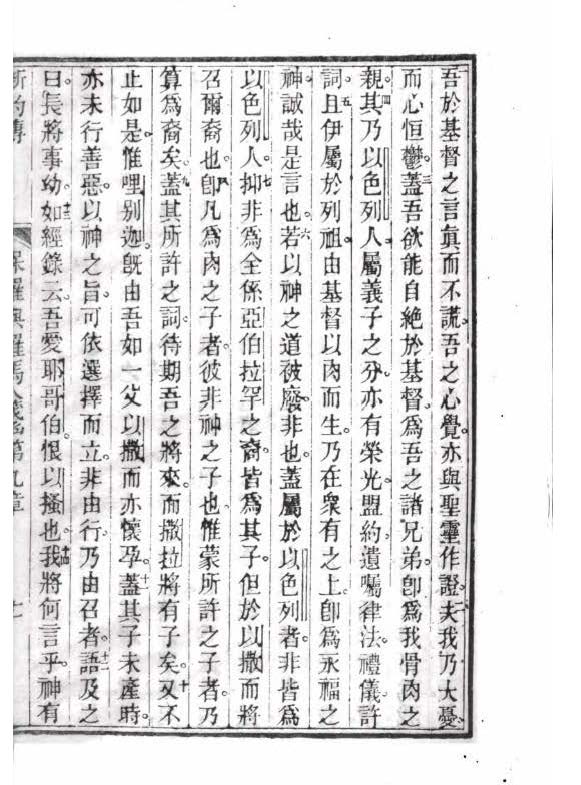 吾於基督之言眞而不謊。吾之心覺亦與聖靈作證。二夫我乃大憂
而心恒鬱。三蓋吾欲能自絕於基督。爲吾之諸兄弟。卽爲我骨肉之
親。四其乃以色列人。屬義子之分。亦有榮光。盟約。遺囑律法。禮儀。許
詞。五且伊屬於列祖。由基督以肉而生。乃在衆有之上。卽爲永福之
神。誠哉是言也。六若以神之道被廢。非也。蓋屬於以色列者。非皆爲
以色列人。七抑非爲全係亞伯拉罕之裔。皆爲其子。但於以撒而將
召爾裔也。八卽凡爲肉之子者。彼非神之子也。惟蒙所許之子者。乃
算爲裔矣。九蓋其所許之詞。待期吾之將來。而撒拉將有子矣。十又不
止如是。惟哩別迦。旣由吾如一父以撒。而亦懷孕。十一蓋其子未產時。
亦未行善惡。以神之旨。可依選擇而立。非由行。乃由召者。十二語及之
曰。長將事幼。十三如經錄云。吾愛耶哥伯。恨以掻也。十四我將何言乎。神有
新約傳 保羅與羅馬人 第九章 七